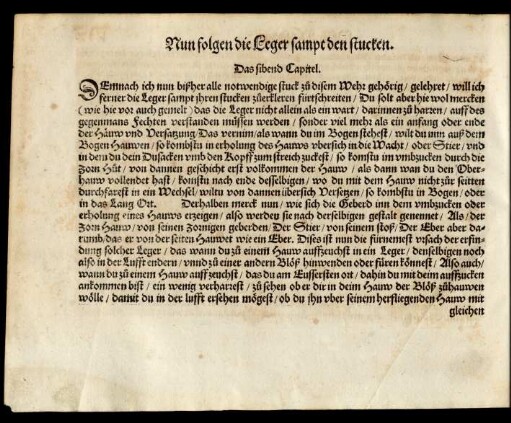 Nun folgen die Leger sampt den stucken.
Das sibend Capitel.
DEmnach ich nun bißher alle notwendige stuck zů disem Wehr gehörig / gelehret / will ich
ferner die Leger sampt jhren stucken zůerkleren fürtschreiten / Du solt aber hie wol mercken
(wie hie vor auch gemelt) das die Leger nicht allein als ein wart / darinnen zů harren / auff des
gegenmans Fechten verstanden müssen werden / sonder viel mehr als ein anfang oder ende
der Häuw vnd Versatzung / Das vernim / als wann du im Bogen stehest / wilt du nun auß dem
Bogen Hauwen / so kombstu in erholung des Hauws vbersich in die Wacht / oder Stier / vnd
in dem du dein Dusacken vmb den Kopff zum streich zuckest / so komstu im vmbzucken durch die
Zorn Hůt / von dannen geschicht erst volkommen der Hauw / als dann wan du den Ober-
hauw vollendet hast / komstu nach ende desselbigen / wo du mit dem Hauw nicht zůr seitten
durchfarest in ein Wechsel / woltu von dannen übersich Versetzen / so kombstu in Bogen / oder
in das Lang Ort. Derhalben merck nun / wie sich die Geberd inn dem vmbzucken oder
erholung eines Hauws erzeigen / also werden sie nach derselbigen gestalt genennet / Als / der
Zorn Hauw / von seinen zornigen geberden / Der Stier / von seinem stoß / Der Eber aber da-
rumb / das er von der seiten Hauwet wie ein Eber. Dises ist nun die fürnemest vrsach der erfin-
dung solcher Leger / das wann du zů einem Hauw auffzeuchst in ein Leger / denselbigen noch
also in der Lufft endern / vnnd zů einer andern Blöß hinwenden oder füren könnest / Also auch /
wann du zů einem Hauw auffzeuchst / das du am Eussersten ort / dahin du mit deim auffzucken
ankommen bist / ein wenig verharrest / zů sehen ob er dir in deim Hauw der Blöß zůhauwen
wölle / damit du in der lufft ersehen mögest / ob du jhn vber seinem herfliegenden Hauw mit
gleichen